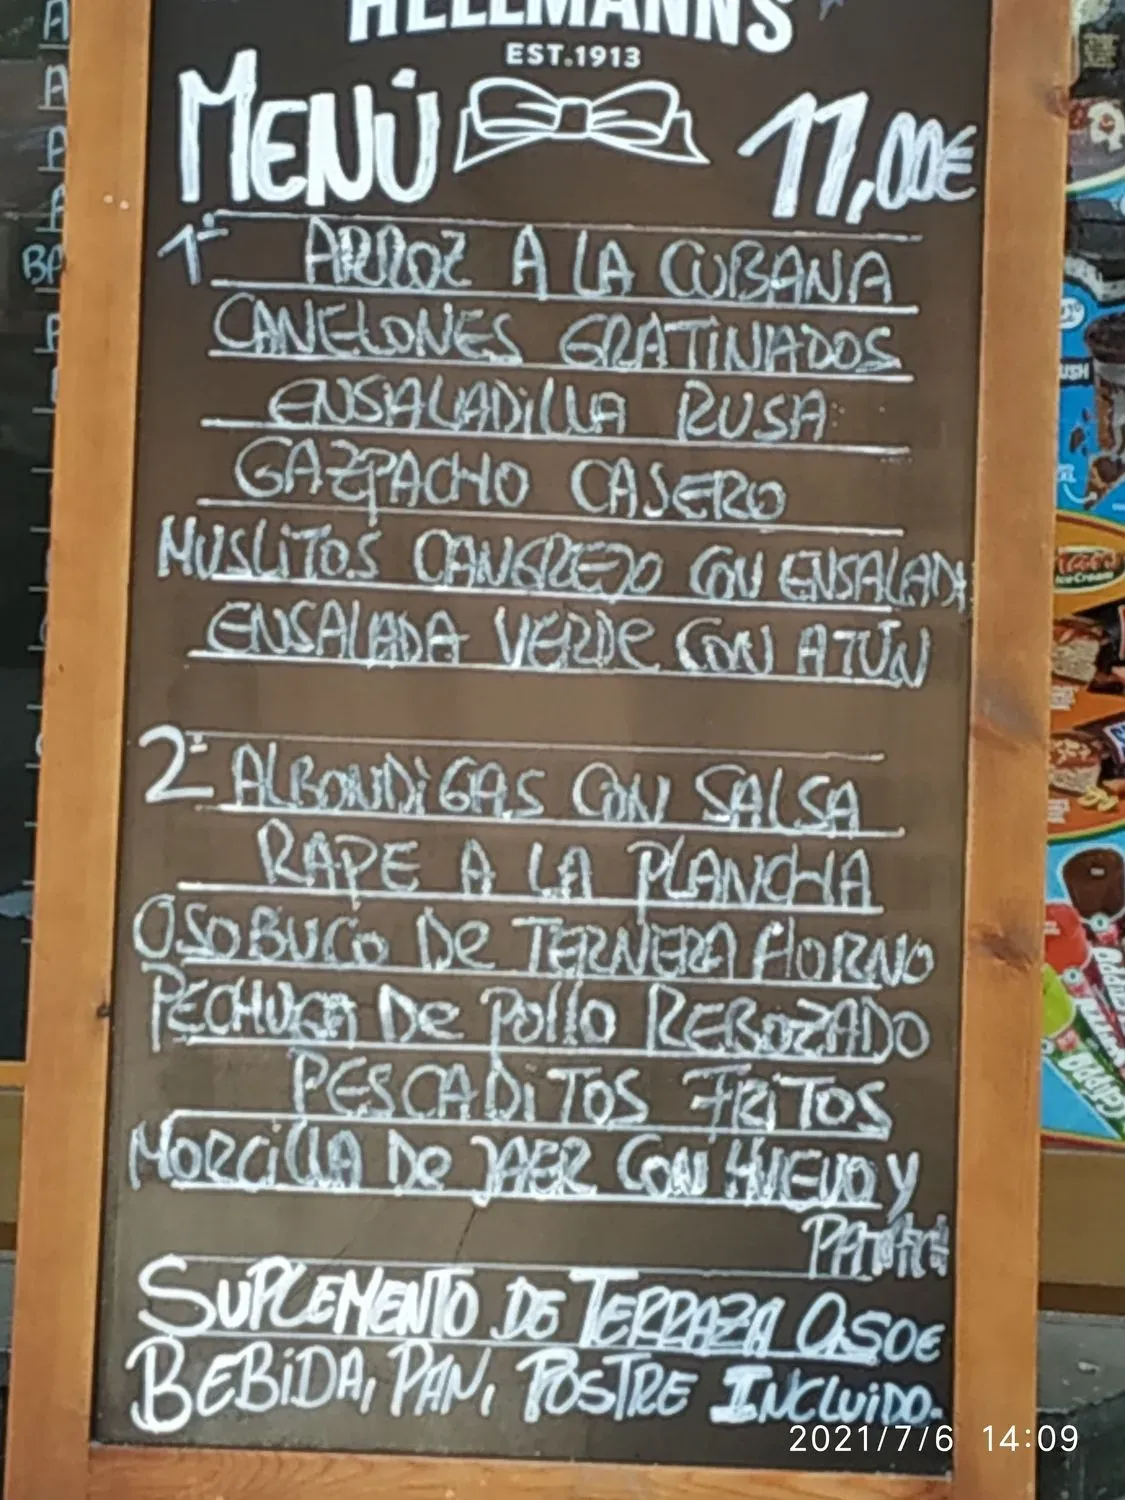 HELLMANN'S
EST.1913
MENÚ 11,00€
1º ARROZ A LA CUBANA
CANELONES GRATINADOS
ENSALADILLA RUSA
GAZPACHO CASERO
MUSLITOS CANGREJO CON ENSALADA
ENSALADA VERDE CON ATÚN
2º ALBONDIGAS CON SALSA
RAPE A LA PLANCHA
OSOBUCO DE TERNERA HORNO
PECHUGA DE POLLO REBOZADO
PESCADITOS FRITOS
MORCILLA DE JAER CON HUEVO Y
SUPLEMENTO DE TERRAZA 0,50€
BEBIDA, PAN, POSTRE INCLUIDO.
2021/7/6 14:09